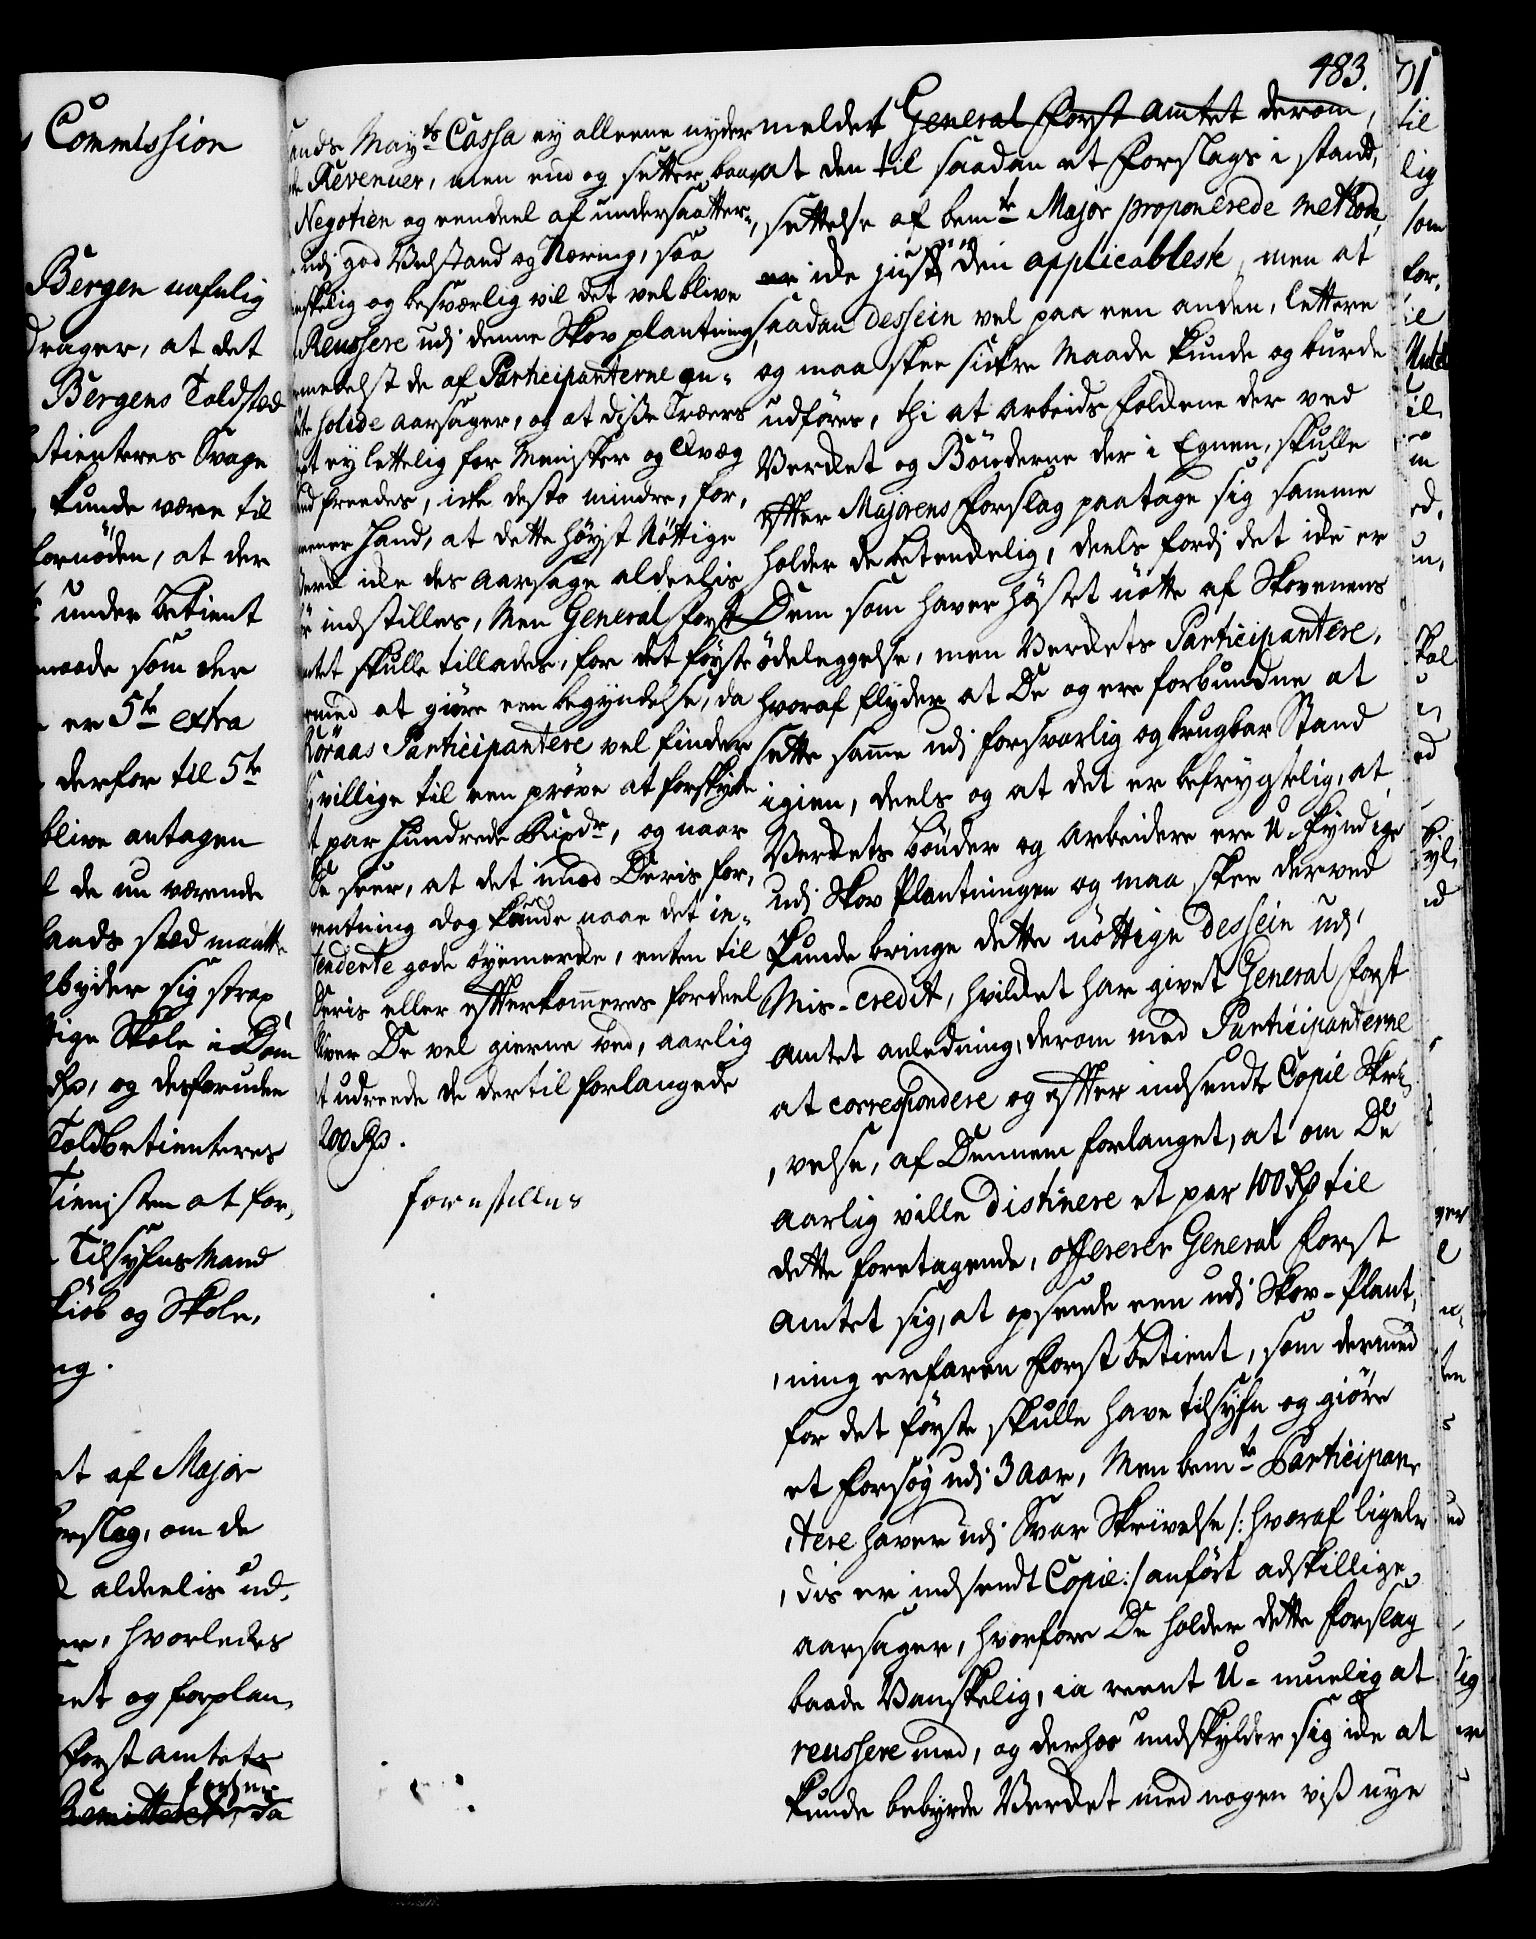 Commission
Bergen
drager, at det
Bergens Toldsted
betienteres Svage
kunde være til
fornöden, at der
under betient
maade som der
er 5te extra
derfor til 5te
blive antagen
de nu værende
lands sted maatte
tilbyder sig strax
Skole i Dom
og desforuden
Toldbetienteres
Tienisten at for,
Tilsyns Mand
Kiöb og Skole,
ng.
et af Major
Forslag, om de
aldeelis ud,
er, hvorledes
et og forplan,
Forst amtets
da
ands Mayts Cassa ey alleene nyder
de Revenuer, men end og setter baade
Negotien og eendeel af undersaatter,
udj god Velstand og Næring, saa
vanskelig og besværlig vil det vel blive
Reussere udj denne Skov plantning,
formedelst de af Participanterne an,
solide aarsager, og at disse Træers
et ey lettelig for Menisker og Qvæg
ind freedes, icke desto mindre, for,
meener hand, at dette höyst Nöttige
verck icke des aarsage aldeelis
indstilles, Men General Forst
amtet skulle tillades, for det föyste
med at giöre een begyndelse, da
Röraas Participantere vel finder
villige til een pröve at forskyde
et par Hundrede Rixdr, og naar
De seer, at det imod Deris for,
ventning dog kunde naae det in,
tendente gode öyemercke, enten til
Deris eller efterkommeres fordeel
bliver De vel gierne ved, aarlig
at udreede de dertil forlangede
200 Rd.
forestilles
483.
meldet General Forst Amtet derom,
at den til saadan et Forslags i stand,
, settelse af bemte Major proponerede Methode,
er icke just den applicableste, men at
saadan dessein vel paa een anden, lettere
og maa skee sickre Maade kunde og burde
udföres, thi at Arbeids folckene der ved
Vercket og Bönderne der i Egnen, skulle
efter Majorens Forslag paatage sig samme
holder de betenckelig, deels fordj det icke er
Dem som haver höstet nötte af Skovenens
ödeleggelse, men Verckets Participantere,
hvoraf flyder at De og ere forbundne at
sette samme udj forsvarlig og brugbar Stand
igien, deels og at det er befrygtelig, at
Verckets bönder og Arbeidere ere U-kyndige
udj Skov Plantningen og maa skee derved
kunde bringe dette nöttige dessein udj
Mis-credit, hvilcket har givet General Forst
Amtet anledning, derom med Participanterne
at correspondere og efter indsendte Copie Skri,
, velse, af Dennem forlanget, at om De
aarlig ville distinere et par 100 Rd til
dette foretagende, offererer General Forst
Amtet sig, at opsende een udj Skov-Plant,
, ning erfaren Forst betient, som dermed
for det föyste skulle have tilsyn og giöre
et Forsög udj 3 Aar, Men bemte Participan,
, tere haver udj Svar Skrivelse /: hvoraf ligele
, dis er indsendt Copie :/ anfört adskillige
aarsager, hvorfore De holder dette Forslag
baade Vanskelig, ia reent U-muelig at
reussere med, og derhos undskylder sig icke at
kunde bebyrde Vercket med nogen viss nye